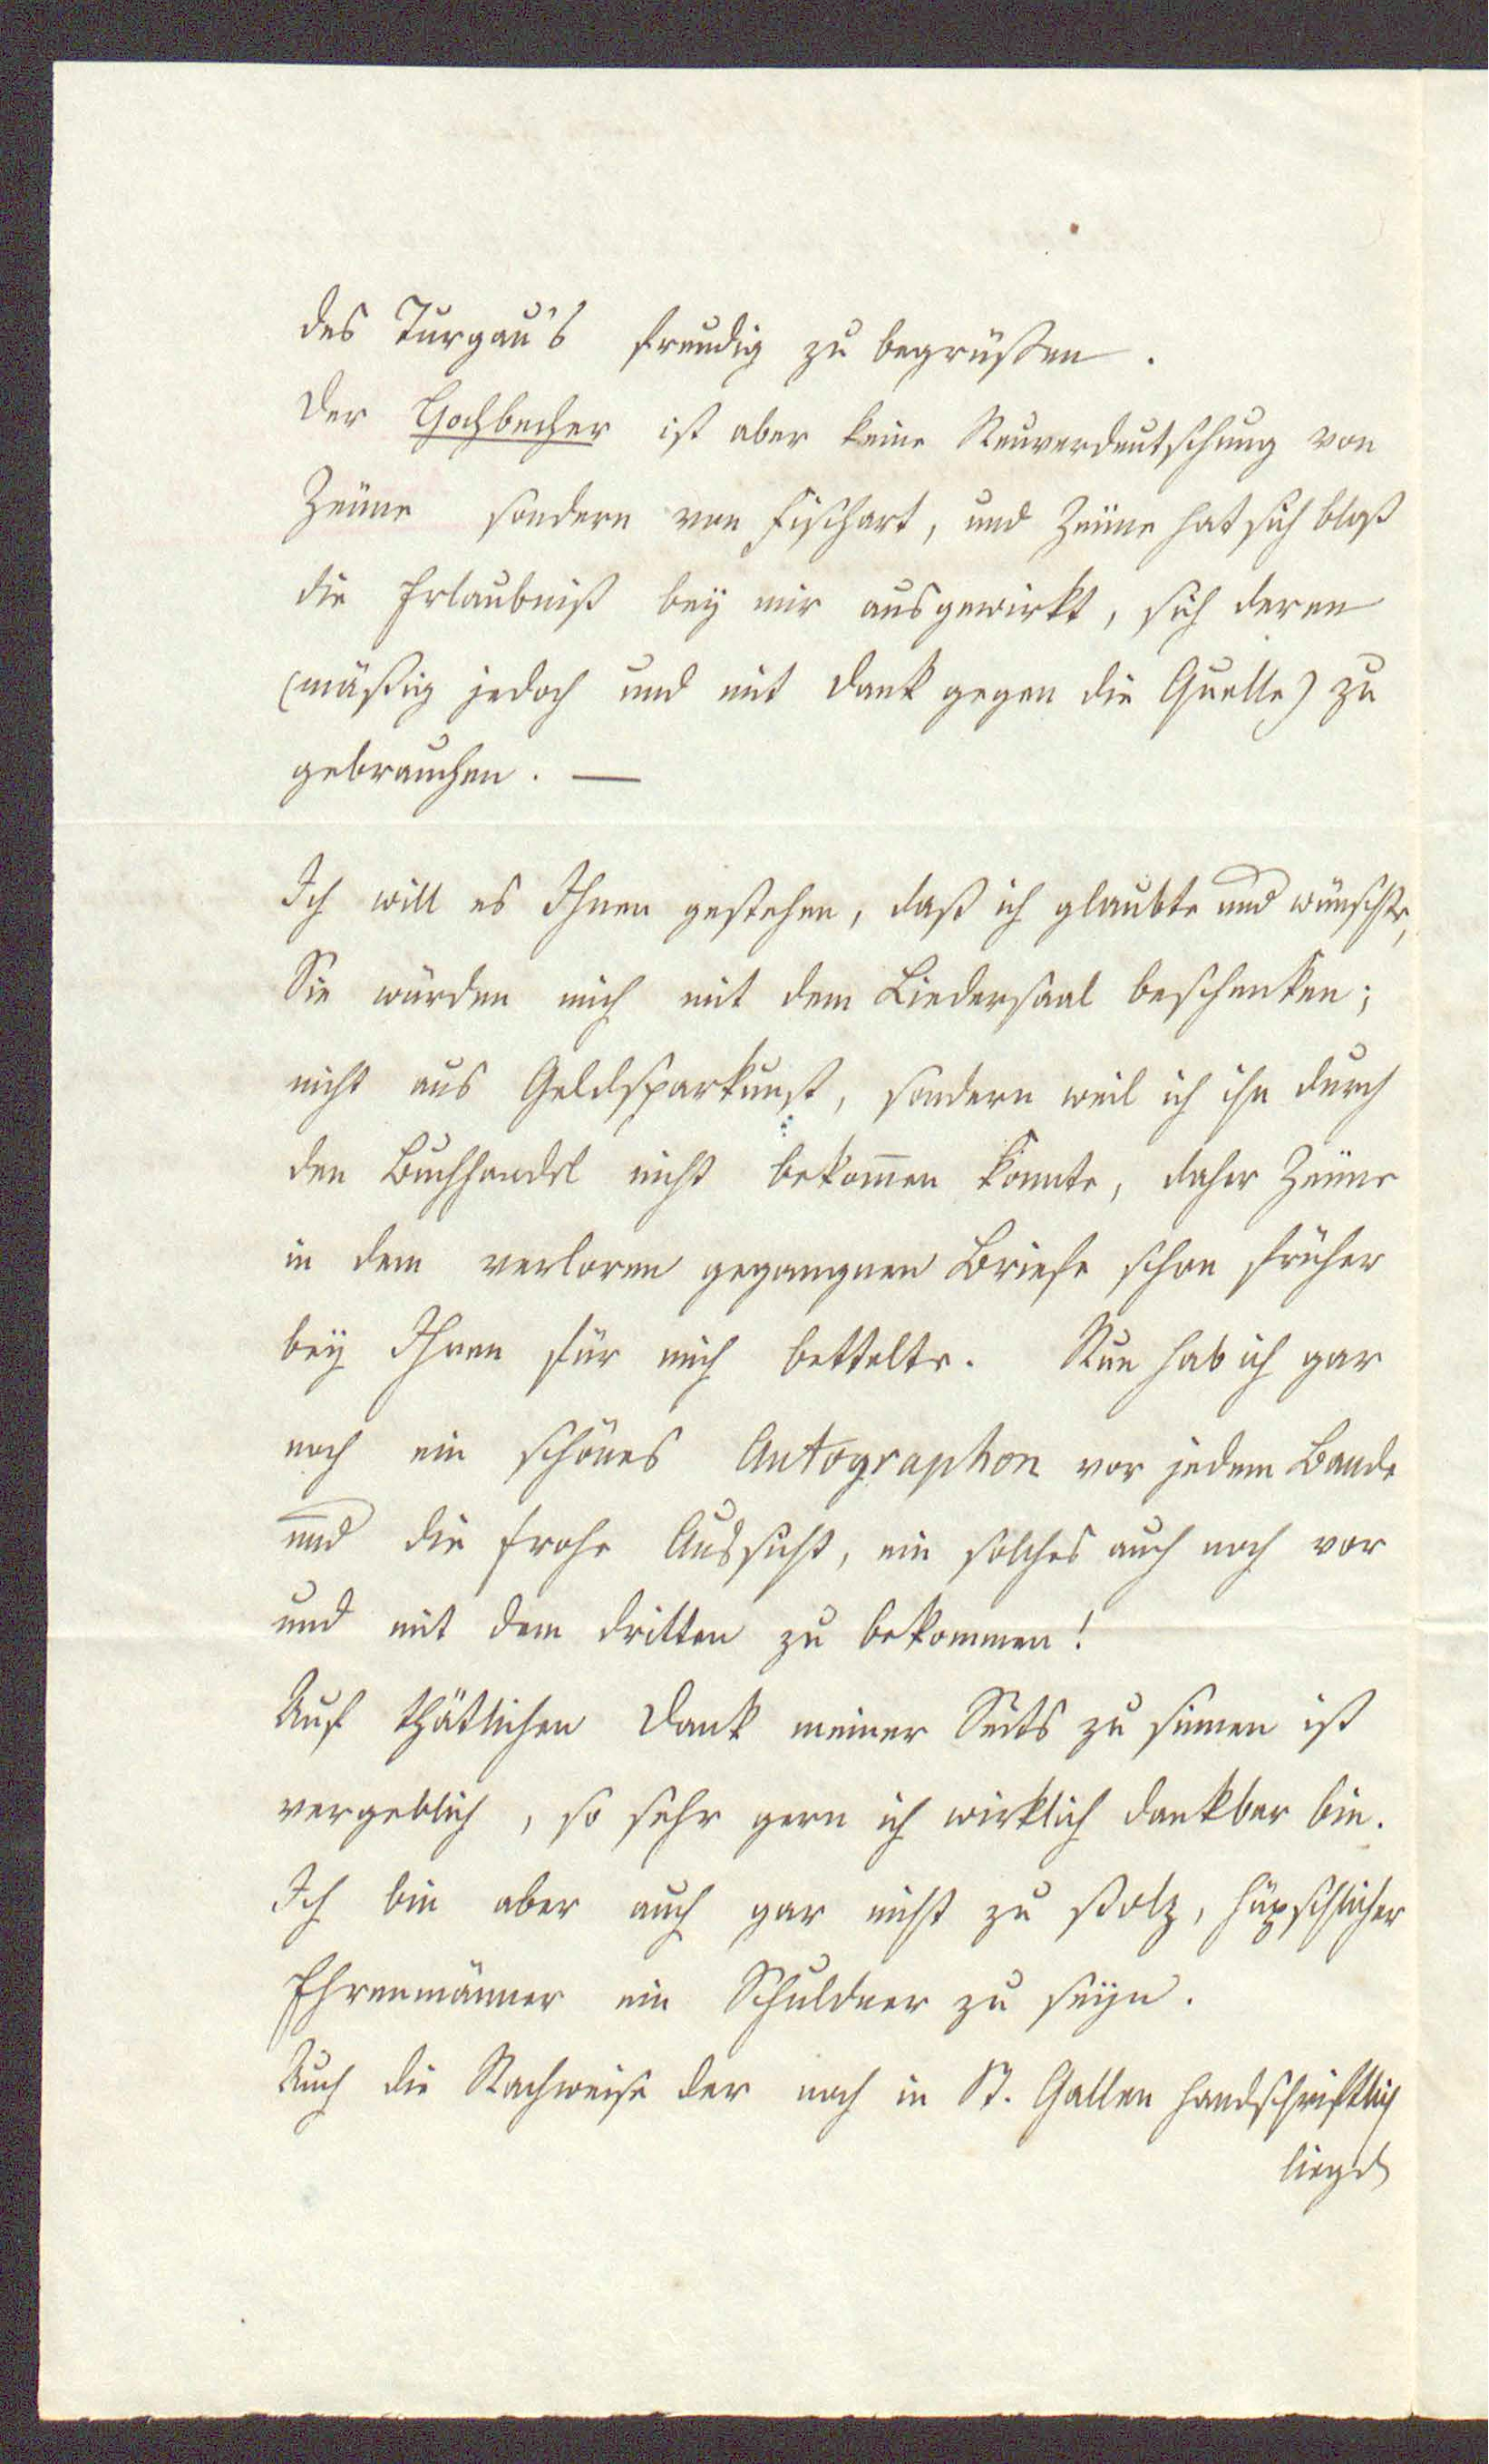 des Turgau's freudig zu begrüßen.
Der Hochbecher ist aber keine Neuverdeutschung von
Zeune sondern von Fischart, und Zeune hat sich bloß
die Erlaubniß bey mir ausgewirkt, sich deren
(mäßig jedoch und mit Dank gegen die Quelle) zu
gebrauchen. —
Ich will es Ihnen gestehen, daß ich glaubte und wünschte,
Sie würden mich mit dem Liedersaal beschenken;
nicht aus Geldsparkunst, sondern weil ich ihn durch
den Buchhandel nicht bekom̄en konnte, daher Zeune
in dem verloren gegangnen Briefe schon früher
bey Ihnen für mich bettelte. Nun hab ich gar
noch ein schönes Autographon vor jedem Bande
und die frohe Aussicht, ein solches auch noch vor
und mit dem dritten zu bekommen!
Auf thätlichen Dank meiner Seits zu sinnen ist
vergeblich, so sehr gern ich wirklich dankbar bin.
Ich bin aber auch gar nicht zu stolz, hüpschlicher
Ehrenmänner ein Schuldner zu seyn.
Auch die Nachweise der noch in St. Gallen handschriftlich